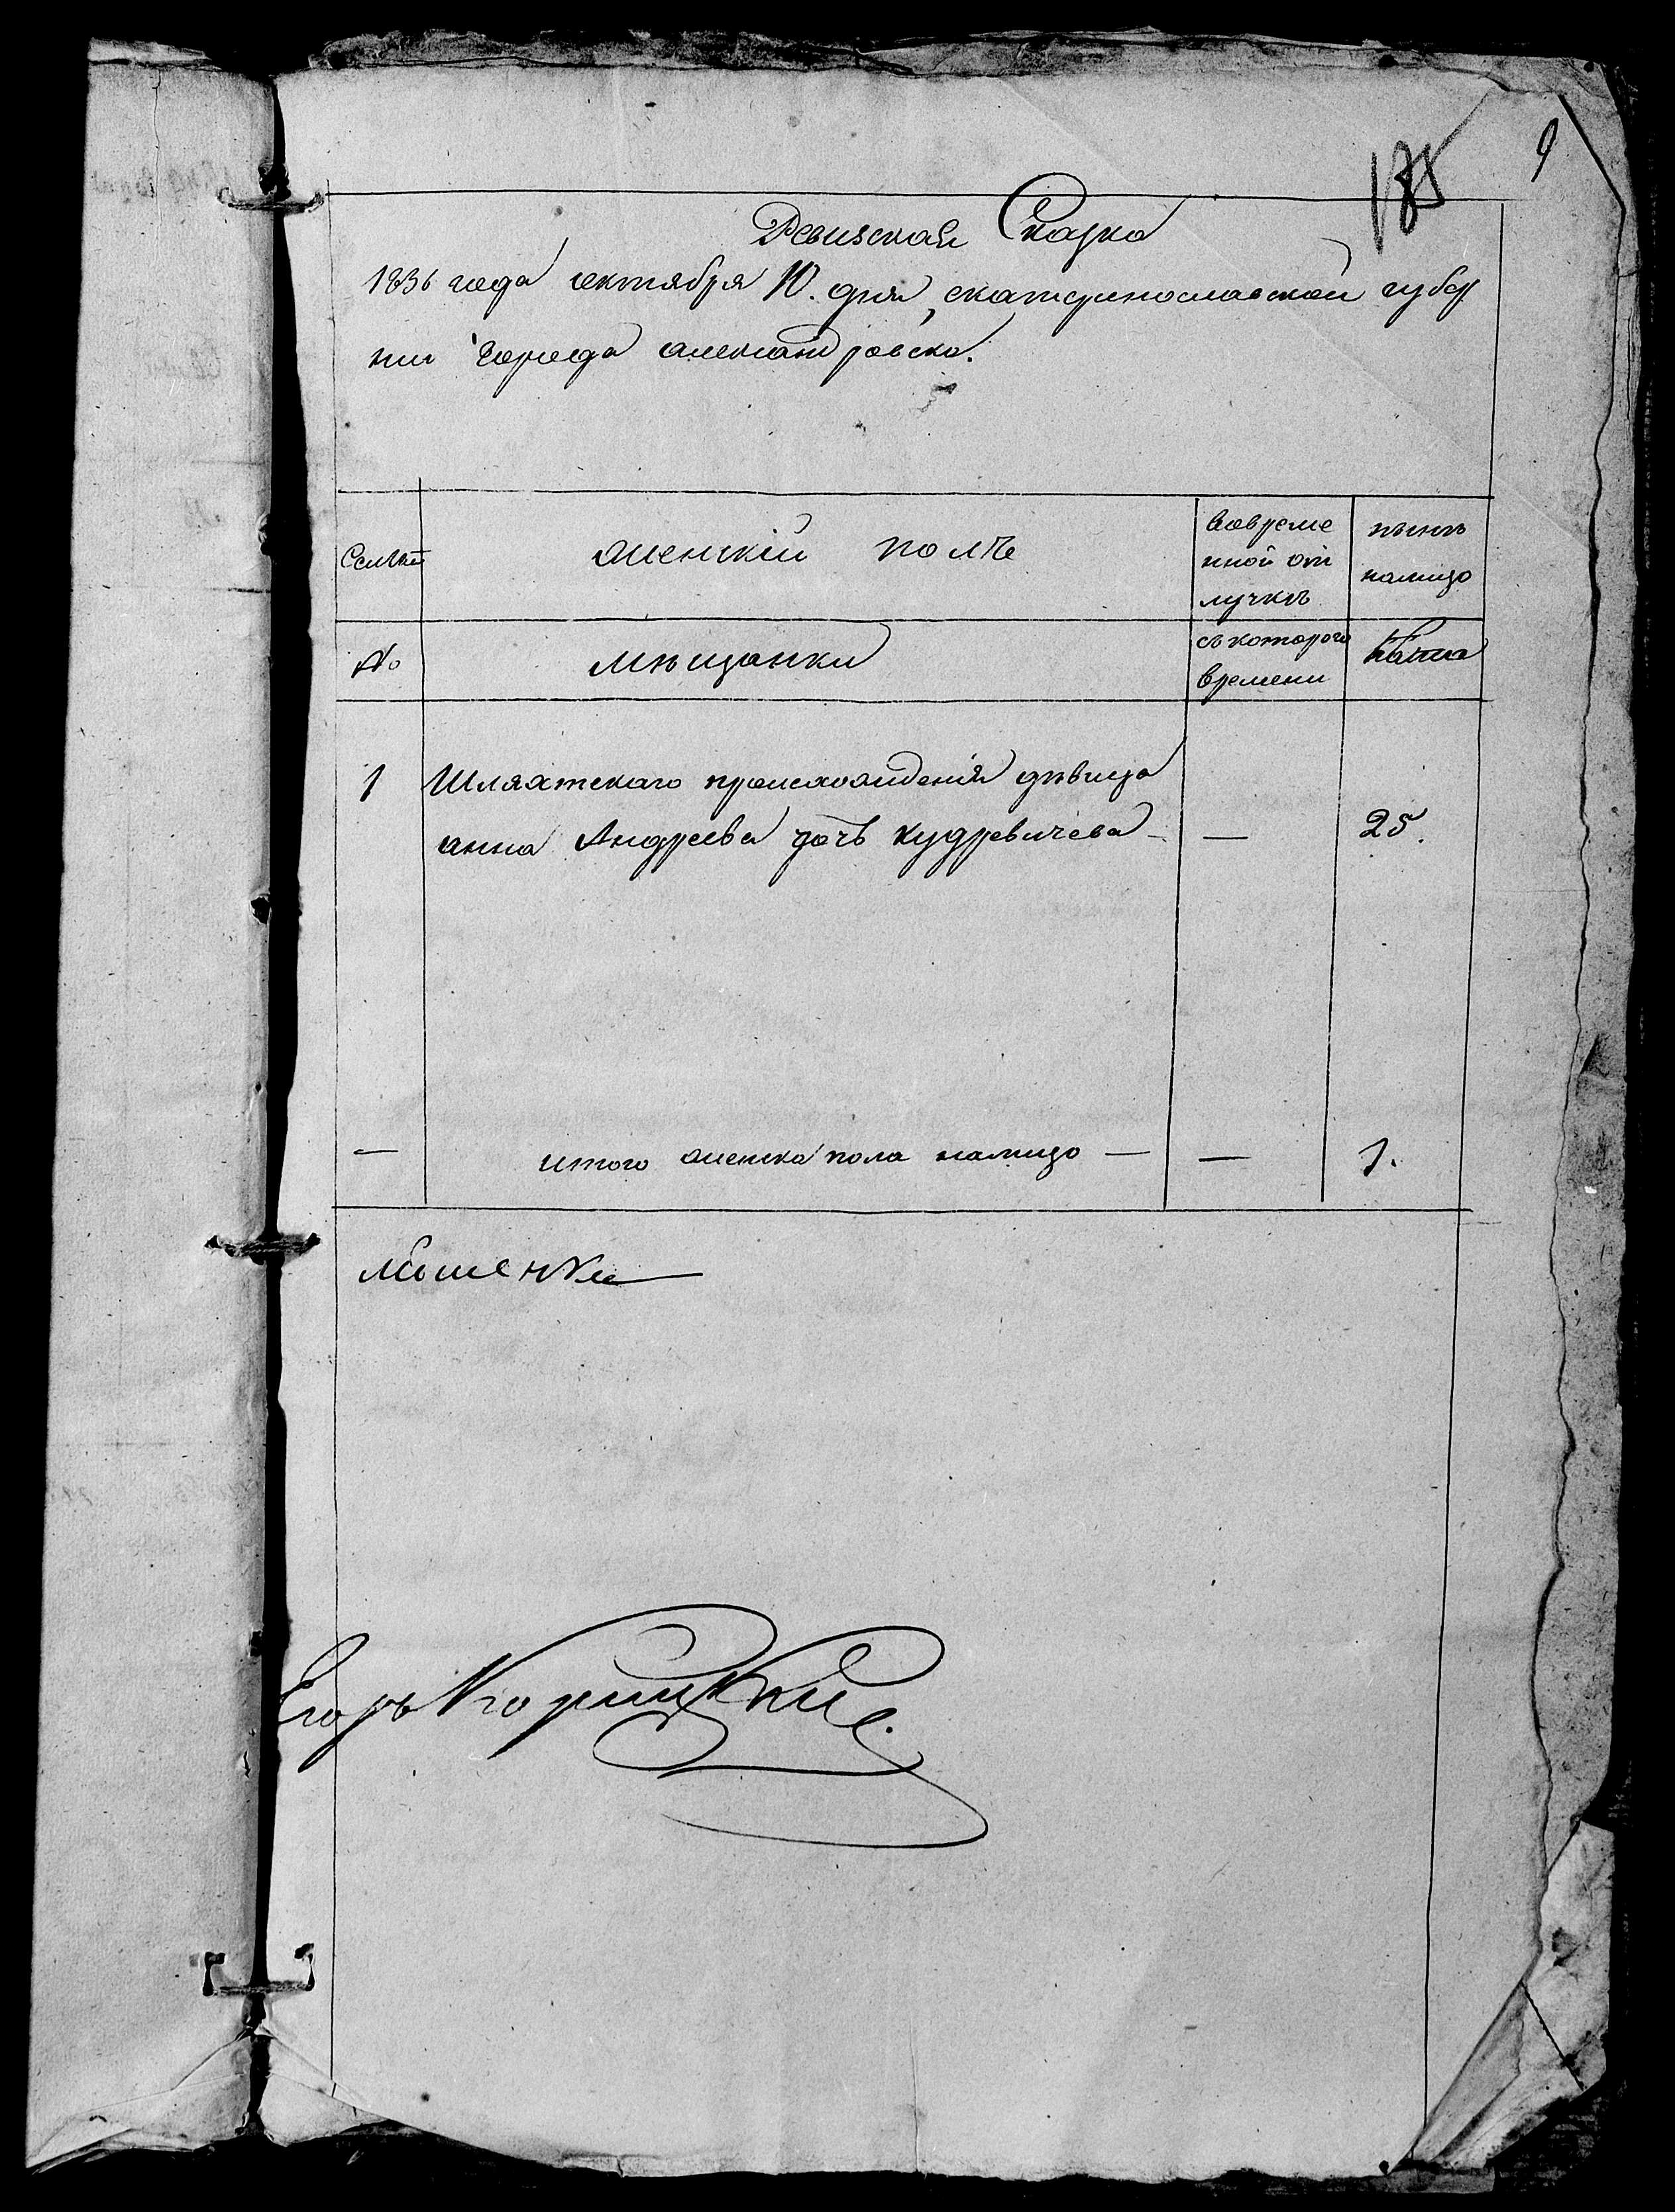 9
185
Ревизская Сказка
1836 года октября 10. дня, екатеринославской губер
нии города александровска.
Семьи
женскій полъ
вовреме
нной от
лучкѣ
нынѣ
налицо
№
мѣщанки
съ котораго
времени
лѣта
1 Шляхтскаго происхожденія дѣвица
анна Андреева дочь кудревичева — — 25.
— итого женска пола налицо — — 1.
Егоръ Корицкій